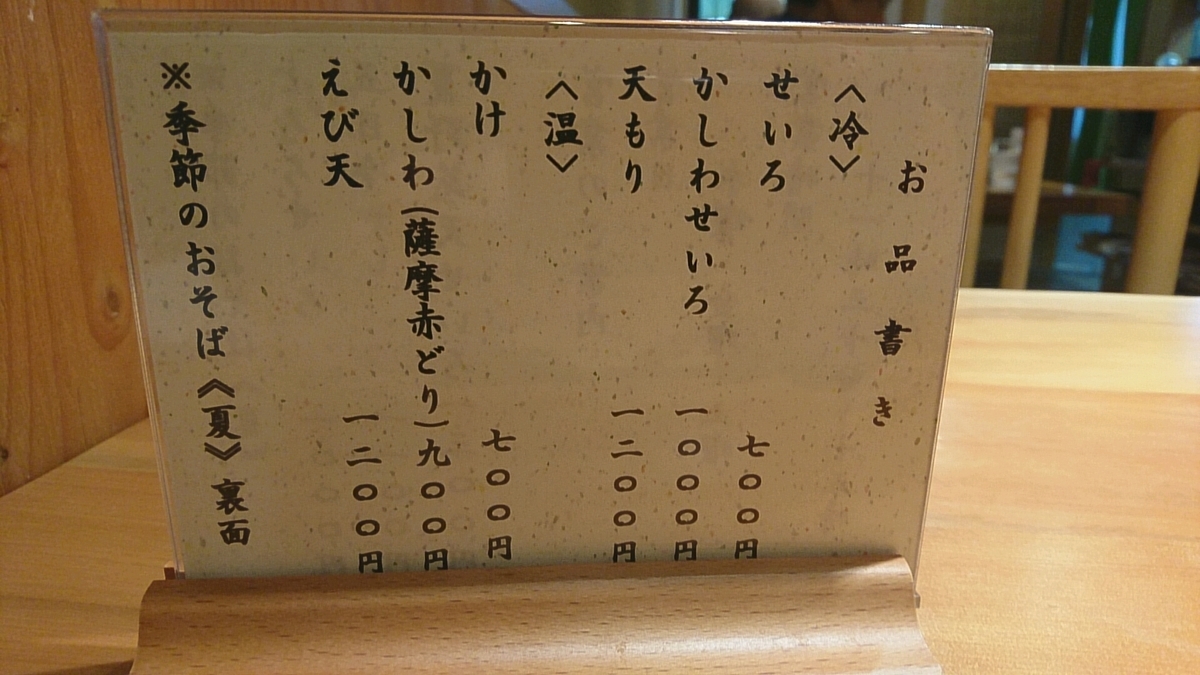 お品書き
〈冷〉
せいろ 七〇〇円
かしわせいろ 一〇〇〇円
天もり 一二〇〇円
〈温〉
かけ 七〇〇円
かしわ(薩摩赤どり)九〇〇円
えび天 一二〇〇円
※季節のおそば《夏》裏面